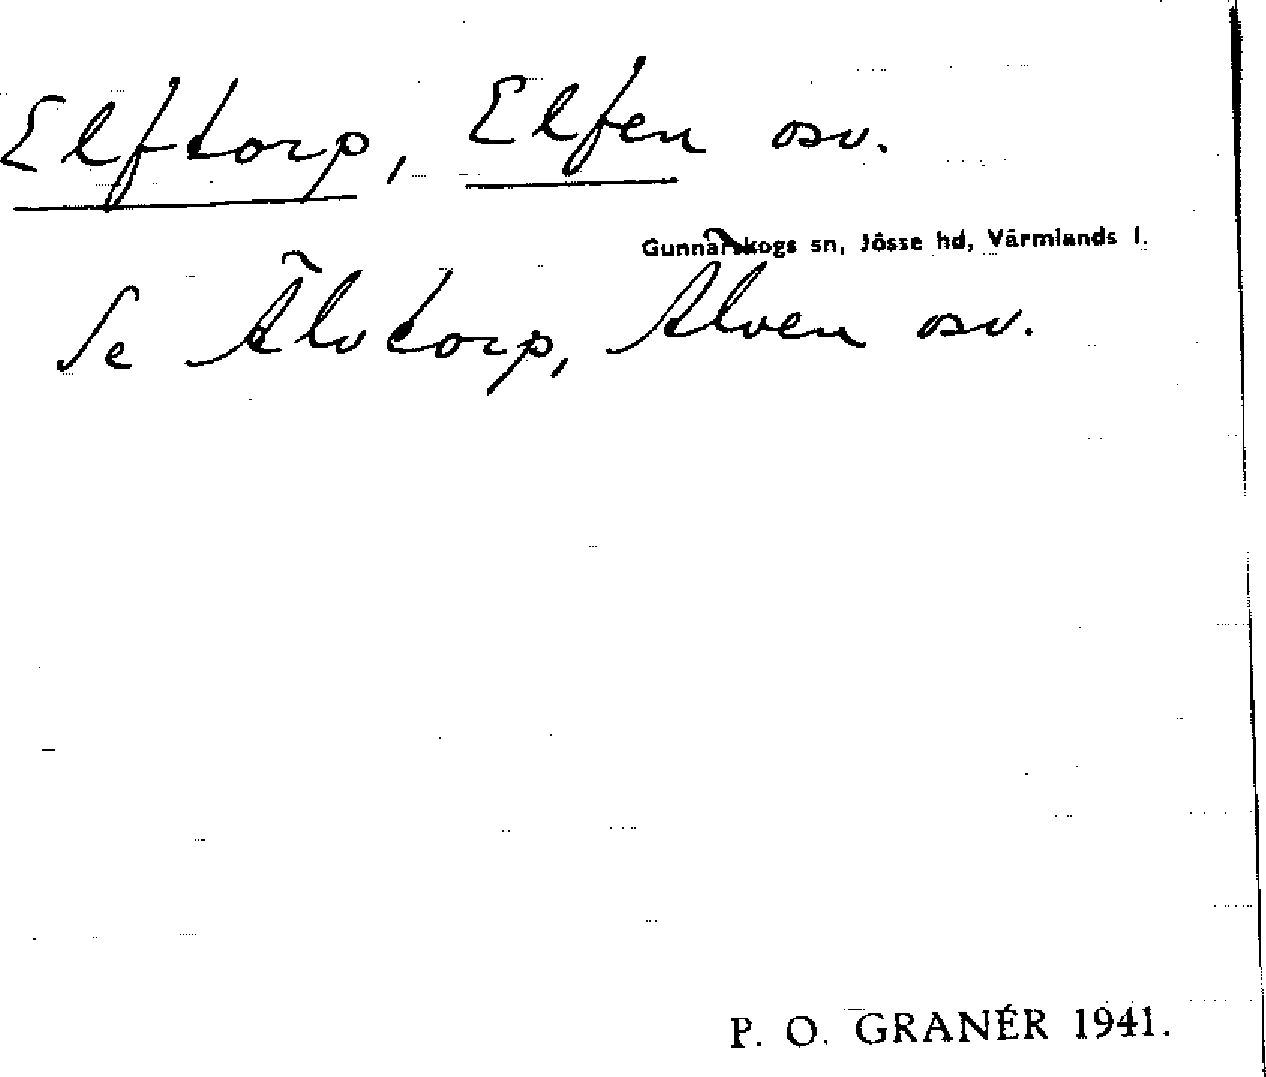 Elftorp, Elfen osv.
Gunnarskogs sn, Jösse hd, Värmlands l.
Se Älvtorp, Älven osv.
P. O. GRANÉR 1941.